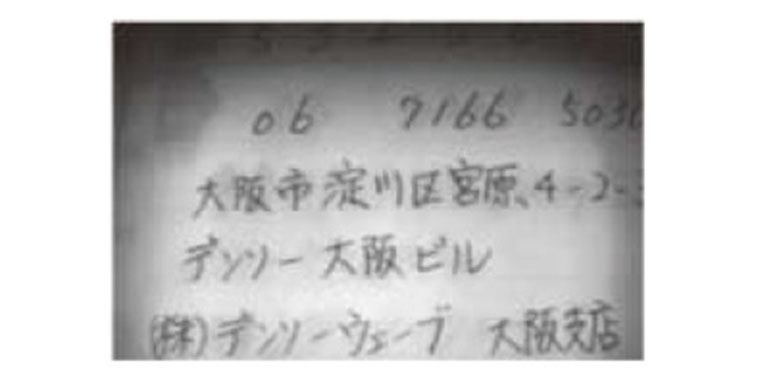 06 7166 503
大阪市淀川区宮原、4-2-
デンソー大阪ビル
(株)デンソーウェーブ 大阪支店